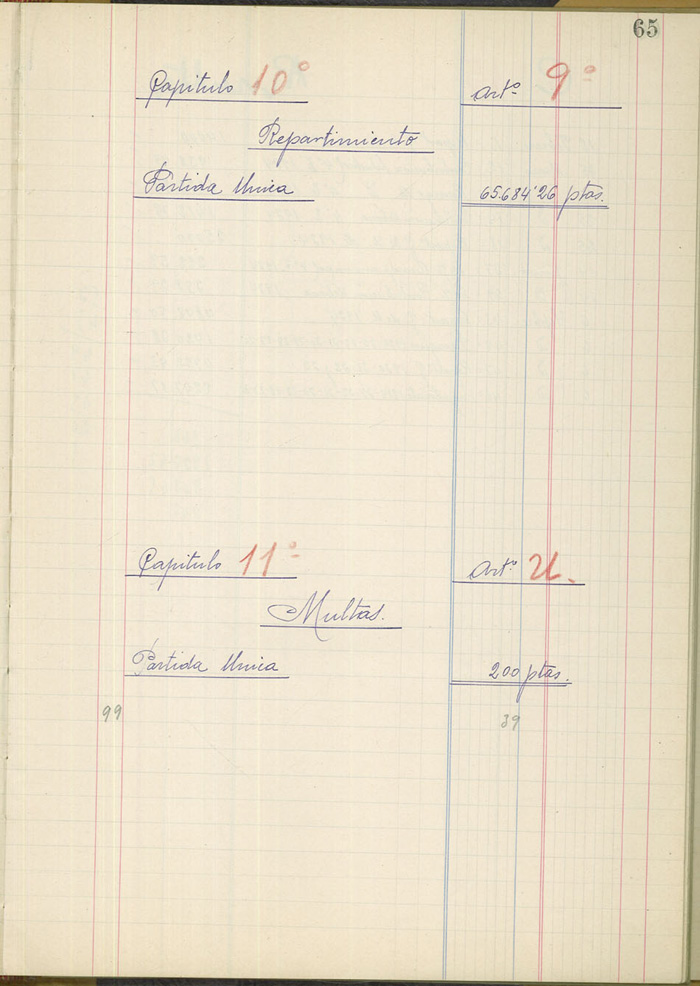 65
Capitulo 10° Artº 9°
Repartimiento
Partida Unica 65.684'26 ptas.
Capitulo 11° Artº U.
Multas.
Partida Unica 200 ptas.
99 39